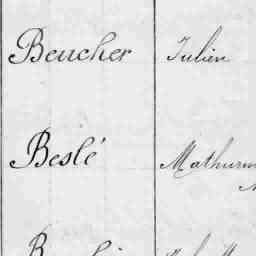 Beucher Julien
Beslé Mathurin